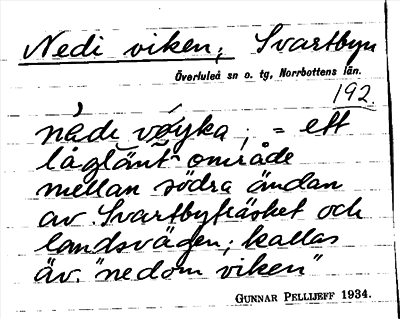 Nedi viken; Svartbyn
Överluleå sn o. tg, Norrbottens län.
192.
nèdı vøyka; = ett
låglänt område
mellan södra ändan
av Svartbyträsket och
landsvägen; kallas
äv. "nedom viken"
GUNNAR PELLIJEFF 1934.